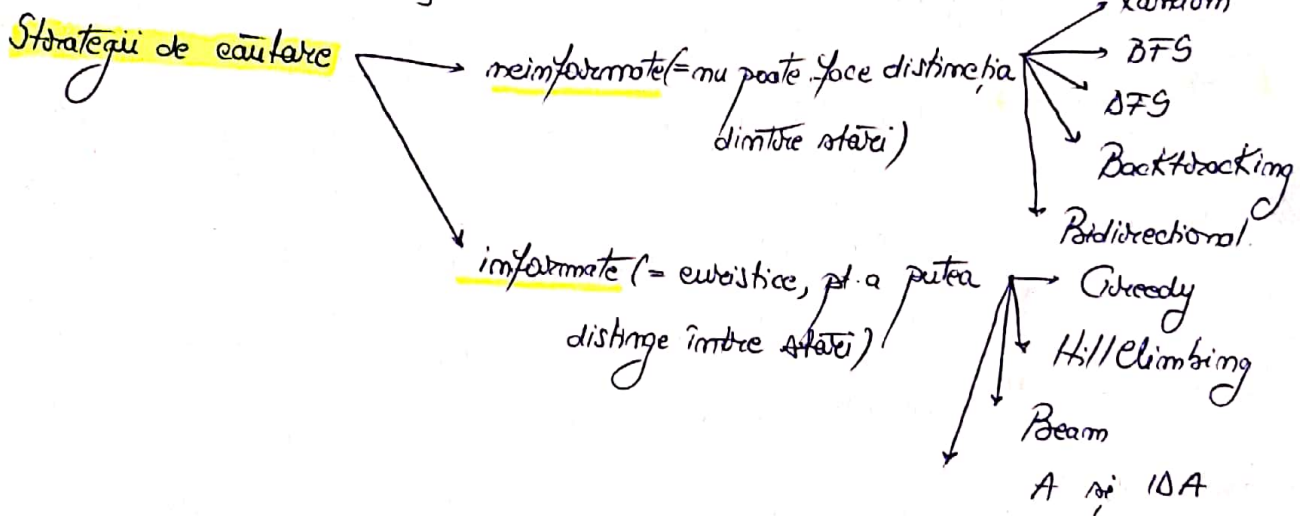 Strategii de căutare
neinformate (= nu poate face distincția
dintre stări)
random
BFS
DFS
Backtracking
Bidirectional
informate (= euristice, pt. a putea
distinge între stări)
Greedy
Hill Climbing
Beam
A și IDA